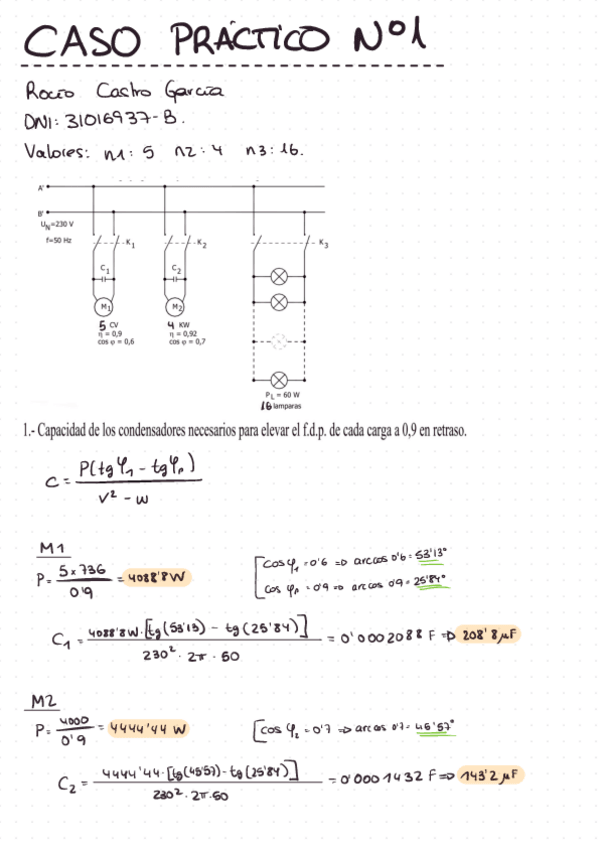 CASO PRÁCTICO Nº1
Rocío Castro García
DNI: 31016937-B.
Valores: n1: 5 n2: 4 n3: 16.
A'
B'
U_N=230 V
f=50 Hz
K1
K2
K3
C1
C2
M1
M2
5 CV
η = 0,9
cos φ = 0,6
4 KW
η = 0,92
cos φ = 0,7
P_L = 60 W
16 lamparas
1.- Capacidad de los condensadores necesarios para elevar el f.d.p. de cada carga a 0,9 en retraso.
C = P(tg φ1 - tg φf) / V² - w
M1
P = 5 x 736 / 0'9 = 4088'8 W
[cos φ1 = 0'6 => arccos 0'6 = 53'13°
cos φf = 0'9 => arccos 0'9 = 25'84°
C1 = 4088'8W · [tg(53'13) - tg(25'84)] / 230² · 2π · 50 = 0'0002088 F => 208'8 μF
M2
P = 4000 / 0'9 = 4444'44 W
[cos φ2 = 0'7 => arcos 0'7 = 45'57°
C2 = 4444'44 · [tg(45'57) - tg(25'84)] / 230² · 2π · 50 = 0'0001432 F => 143'2 μF